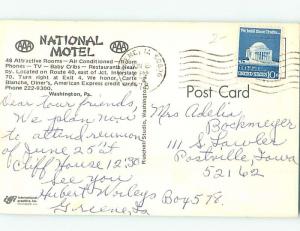 AAA NATIONAL MOTEL AAA
48 Attractive Rooms — Air Conditioned — Room
Phones — TV — Baby Cribs — Restaurants Near-
by. Located on Route 40, east of Jct. Interstate
70. Turn right at Exit 4. We honor, Carte
Blanche, Diner's, American Express credit cards.
Phone 222-9300.
Washington, Pa.
Dear tour friends,
We plan now
to attend reunion
of June 25th
Cliff House 12:30
See you
Hubert Worleys
Greene, Ia
Boy 58
Post Card
Mrs Adelia
Bockmeyer
111 S. Lawler
Postville, Iowa
52162
10c